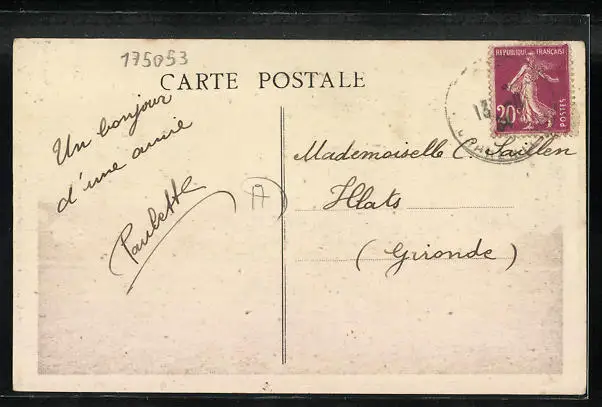 175053
CARTE POSTALE
REPUBLIQUE FRANÇAISE
20c
POSTES
13
Un bonjour
d'une amie
Paulette
A
Mademoiselle C.
Illats
(Gironde)